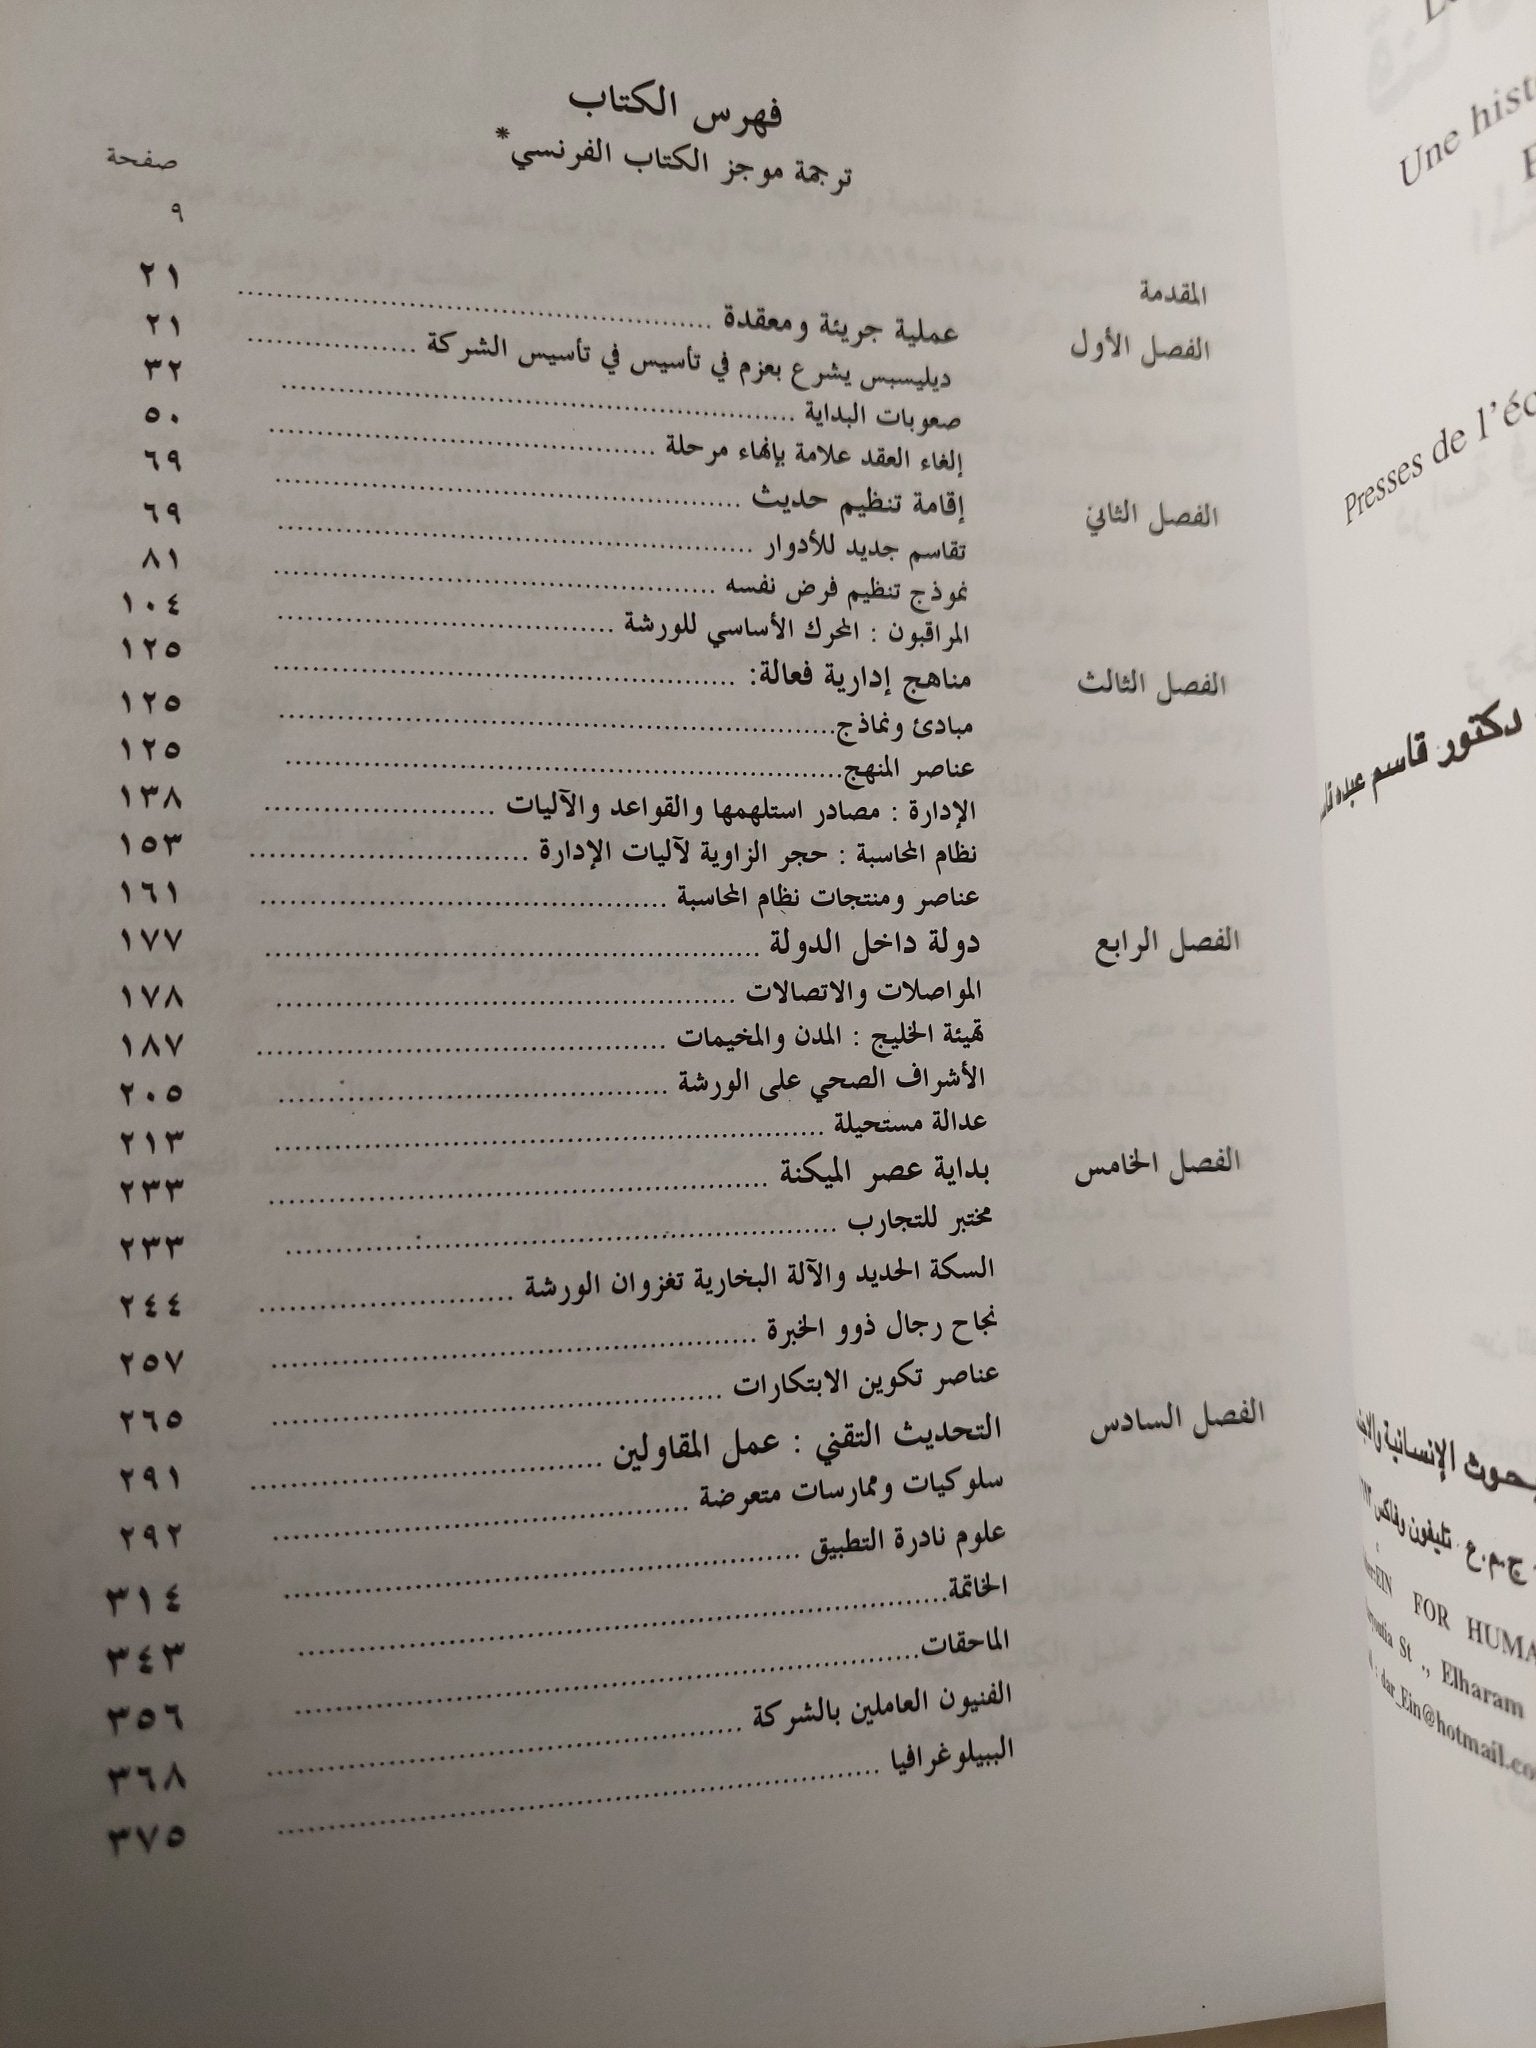 فهرس الكتاب
ترجمة موجز الكتاب الفرنسي*
صفحة
المقدمة ٩
الفصل الأول عملية جريئة ومعقدة ........ ٢١
ديليسبس يشرع بعزم في تأسيس في تأسيس الشركة ........ ٢١
صعوبات البداية ........ ٣٢
إلغاء العقد علامة بإنهاء مرحلة ........ ٥٠
الفصل الثاني إقامة تنظيم حديث ........ ٦٩
تقاسم جديد للأدوار ........ ٦٩
نموذج تنظيم فرض نفسه ........ ٨١
المراقبون : المحرك الأساسي للورشة ........ ١٠٤
الفصل الثالث مناهج إدارية فعالة: ........ ١٢٥
مبادئ ونماذج ........ ١٢٥
عناصر المنهج ........ ١٢٥
الإدارة : مصادر استلهمها والقواعد والآليات ........ ١٣٨
نظام المحاسبة : حجر الزاوية لآليات الإدارة ........ ١٥٣
عناصر ومنتجات نظام المحاسبة ........ ١٦١
الفصل الرابع دولة داخل الدولة ........ ١٧٧
المواصلات والاتصالات ........ ١٧٨
تهيئة الخليج : المدن والمخيمات ........ ١٨٧
الأشراف الصحي على الورشة ........ ٢٠٥
عدالة مستحيلة ........ ٢١٣
الفصل الخامس بداية عصر الميكنة ........ ٢٣٣
مختبر للتجارب ........ ٢٣٣
السكة الحديد والآلة البخارية تغزوان الورشة ........ ٢٤٤
نجاح رجال ذوو الخبرة ........ ٢٥٧
عناصر تكوين الابتكارات ........ ٢٦٥
الفصل السادس التحديث التقني : عمل المقاولين ........ ٢٩١
سلوكيات وممارسات متعرضة ........ ٢٩٢
علوم نادرة التطبيق ........ ٣١٤
الخاتمة ........ ٣٤٣
الماحقات ........ ٣٥٦
الفنيون العاملين بالشركة ........ ٣٦٨
الببيلوغرافيا ........ ٣٧٥
Une
Presses de
دكتور قاسم عبده
الإنسانية
ج.م.ع تليفون وفاكس
FOR
St ., Elharam
dar_Ein@hotmail.co